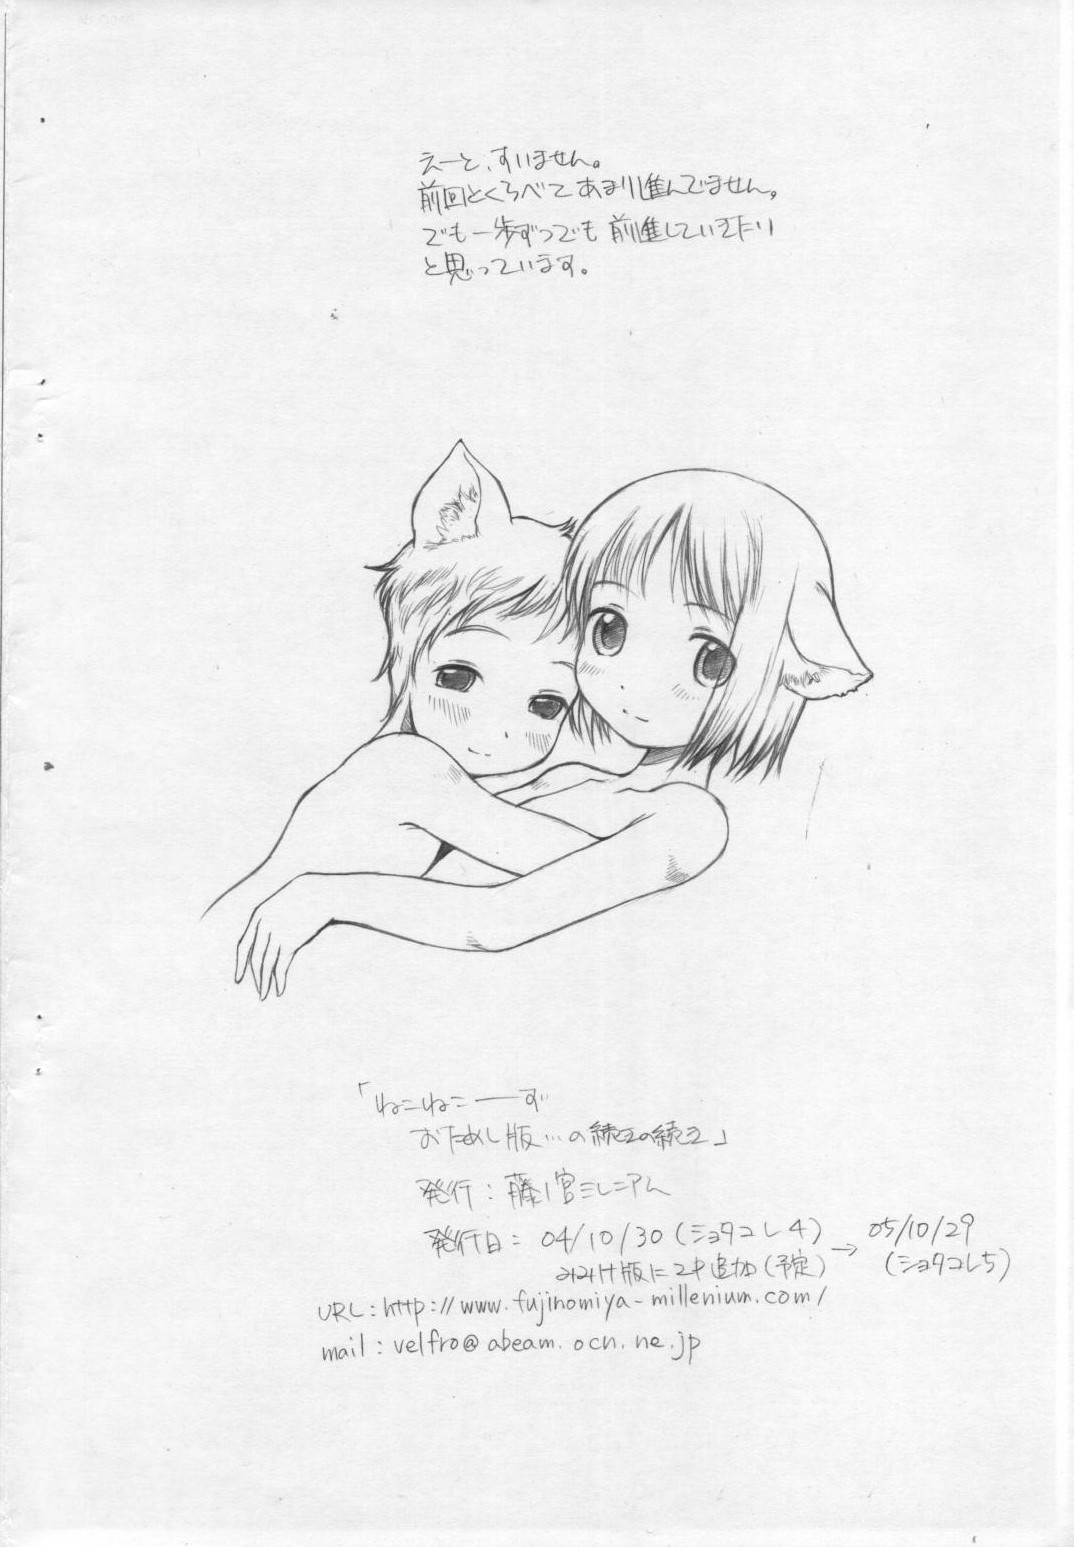 えーと、すいません。
前回とくらべてあまり進んでません。
でも一歩ずつでも前進していきたい
と思っています。
「ねこねこーーず
おためし版…の続きの続き」
発行：藤ノ宮ミレニアム
発行日：04/10/30(ショタコレ4)→05/10/29
版に2P追加(予定)(ショタコレ5)
URL:http://www.fujinomiya-millenium.com/
mail:velfro@abeam.ocn.ne.jp